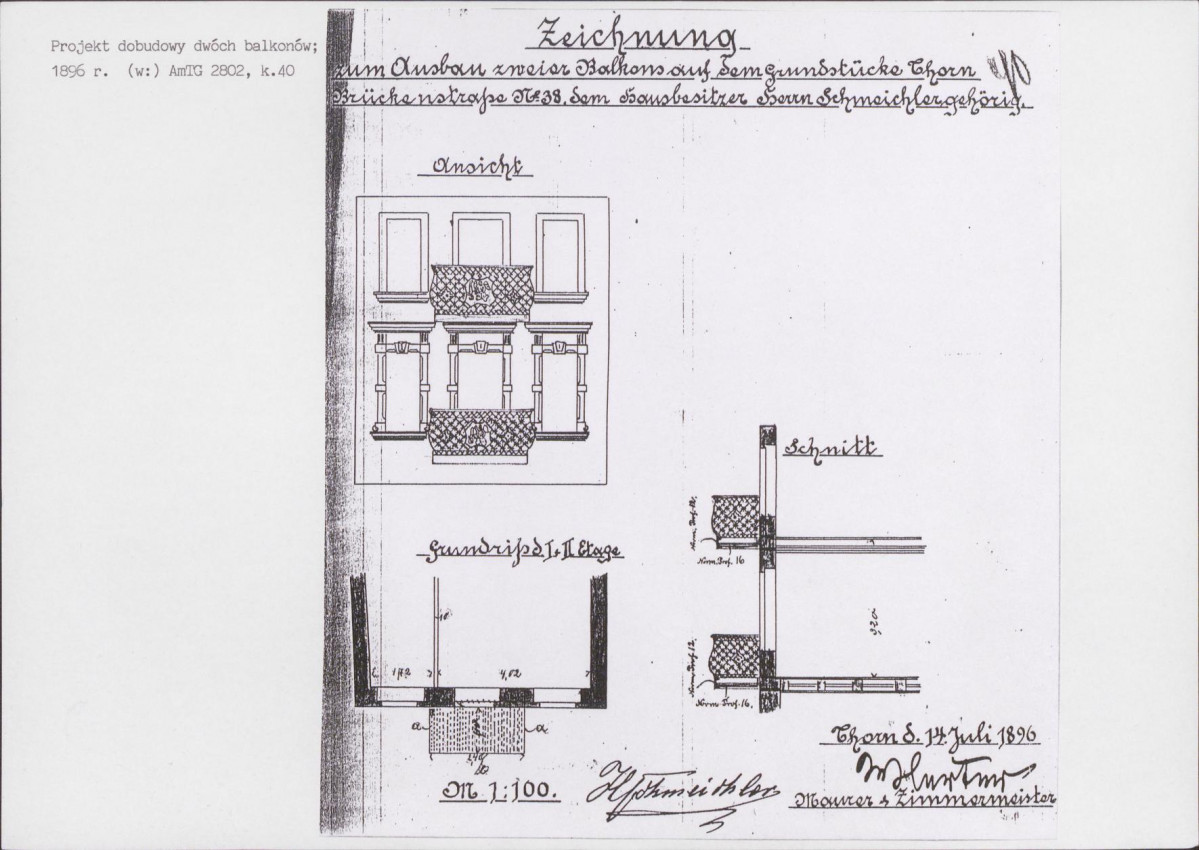 Projekt dobudowy dwóch balkonów;
1896 r. (w:) AmTG 2802, k.40
Zeichnung
zum Ausbau zweier Balkons auf dem Grundstücke Thorn
40
Brückenstraße № 38. dem Hausbesitzer Herrn Schmeichler gehörig.
Ansicht
Schnitt
Norm. Prof. 12.
Norm. Prof. 16
Grundriß d. I + II Etage
10
1,72
4,02
3,20
Norm. Prof. 12.
Norm. Prof. 16.
a
a
2,40
M 1:100.
HSchmeichler
Thorn d. 14. Juli 1896
Maurer & Zimmermeister